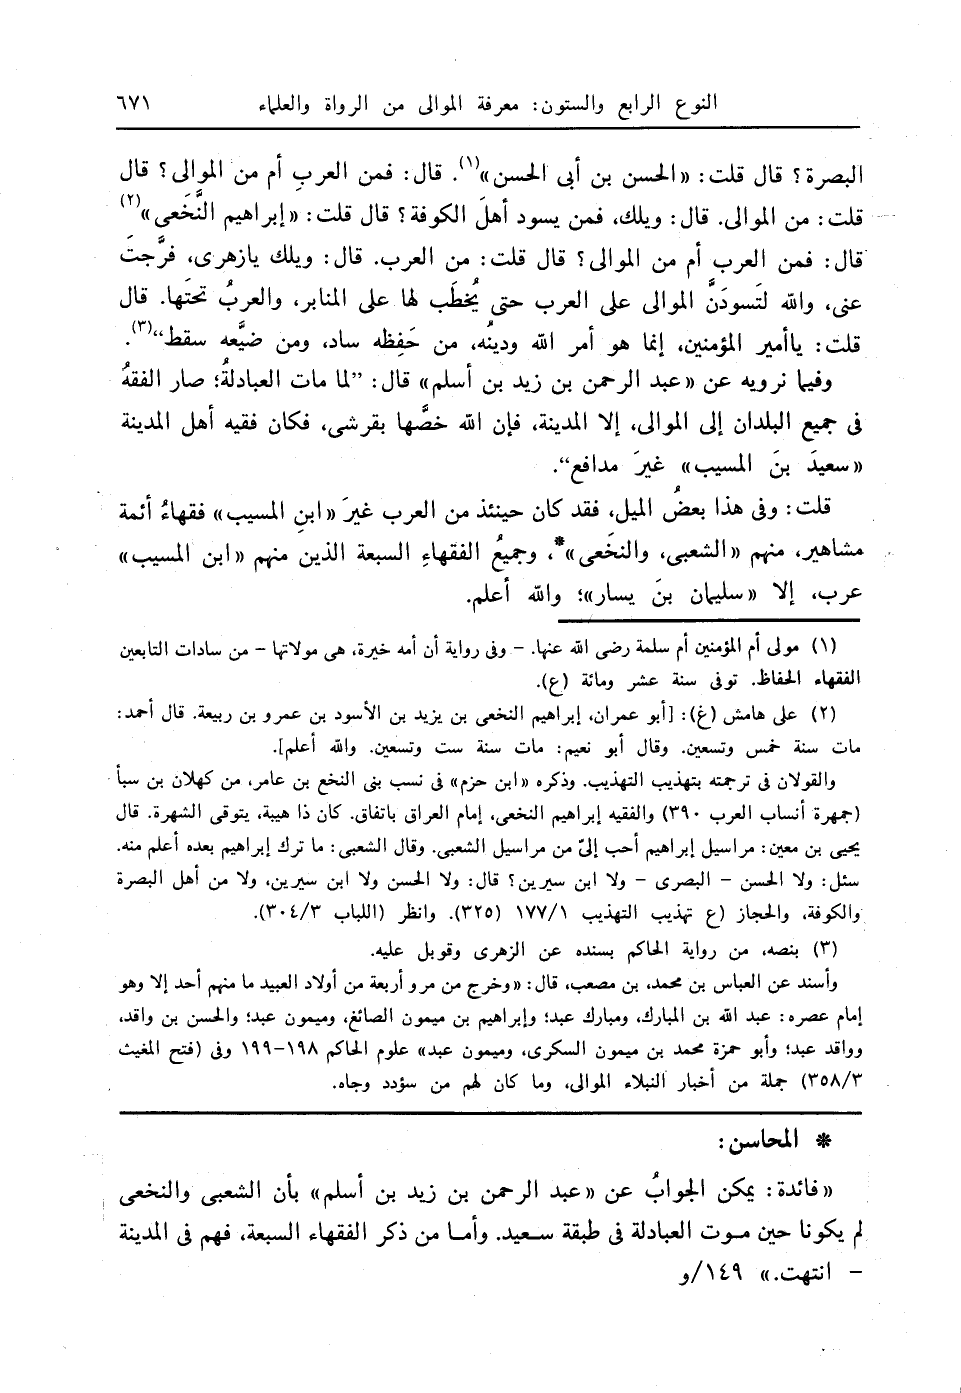 النوع الرابع والستون: معرفة الموالى من الرواة والعلماء ٦٧١
البصرة؟ قال قلت: «الحسن بن أبى الحسن»(١). قال: فمن العربِ أم من الموالى؟ قال
قلت: من الموالى. قال: ويلك، فمن يسود أهلَ الكوفة؟ قال قلت: «إبراهيم النَّخَعى»(٢)
قال: فمن العرب أم من الموالى؟ قال قلت: من العرب. قال: ويلك يازهرى، فرَّجتَ
عنى، والله لتَسودَنَّ الموالى على العرب حتى يُخطَب لها على المنابر، والعربُ تحتَها. قال
قلت: ياأمير المؤمنين، إنما هو أمر الله ودينُه، من حَفِظه ساد، ومن ضيَّعه سقط“(٣).
وفيما نرويه عن «عبد الرحمن بن زيد بن أسلم» قال: ”لما مات العبادلةُ؛ صار الفقهُ
فى جميع البلدان إلى الموالى، إلا المدينة، فإن الله خصَّها بقرشى، فكان فقيه أهل المدينة
«سعيدَ بنَ المسيب» غيرَ مدافع“.
قلت: وفى هذا بعضُ الميل، فقد كان حينئذ من العرب غيرَ «ابنِ المسيب» فقهاءُ أئمة
مشاهير، منهم «الشعبى، والنخَعى»*، وجميعُ الفقهاءِ السبعة الذين منهم «ابن المسيب»
عرب، إلا «سليمان بنَ يسار»؛ والله أعلم.
(١) مولى أم المؤمنين أم سلمة رضى الله عنها. – وفى رواية أن أمه خيرة، هى مولاتها – من سادات التابعين
الفقهاء الحفاظ. توفى سنة عشر ومائة (ع).
(٢) على هامش (غ): [أبو عمران، إبراهيم النخعى بن يزيد بن الأسود بن عمرو بن ربيعة. قال أحمد:
مات سنة خمس وتسعين. وقال أبو نعيم: مات سنة ست وتسعين. والله أعلم].
والقولان فى ترجمته بتهذيب التهذيب. وذكره «ابن حزم» فى نسب بنى النخع بن عامر، من كهلان بن سبأ
(جمهرة أنساب العرب ٣٩٠) والفقيه إبراهيم النخعى، إمام العراق باتفاق. كان ذا هيبة، يتوقى الشهرة. قال
يحيى بن معين: مراسيل إبراهيم أحب إلىّ من مراسيل الشعبى. وقال الشعبى: ما ترك إبراهيم بعده أعلم منه.
سئل: ولا الحسن – البصرى – ولا ابن سيرين؟ قال: ولا الحسن ولا ابن سيرين، ولا من أهل البصرة
والكوفة، والحجاز (ع تهذيب التهذيب ١٧٧/١ (٣٢٥). وانظر (اللباب ٣٠٤/٣).
(٣) بنصه، من رواية الحاكم بسنده عن الزهرى وقوبل عليه.
وأسند عن العباس بن محمد، بن مصعب، قال: «وخرج من مرو أربعة من أولاد العبيد ما منهم أحد إلا وهو
إمام عصره: عبد الله بن المبارك، ومبارك عبد؛ وإبراهيم بن ميمون الصائغ، وميمون عبد؛ والحسن بن واقد،
وواقد عبد؛ وأبو حمزة محمد بن ميمون السكرى، وميمون عبد» علوم الحاكم ١٩٨–١٩٩ وفى (فتح المغيث
٣٥٨/٣) جملة من أخبار النبلاء الموالى، وما كان لهم من سؤدد وجاه.
* المحاسن:
«فائدة: يمكن الجوابُ عن «عبد الرحمن بن زيد بن أسلم» بأن الشعبى والنخعى
لم يكونا حين موت العبادلة فى طبقة سعيد. وأما من ذكر الفقهاء السبعة، فهم فى المدينة
– انتهت.» ١٤٩/و